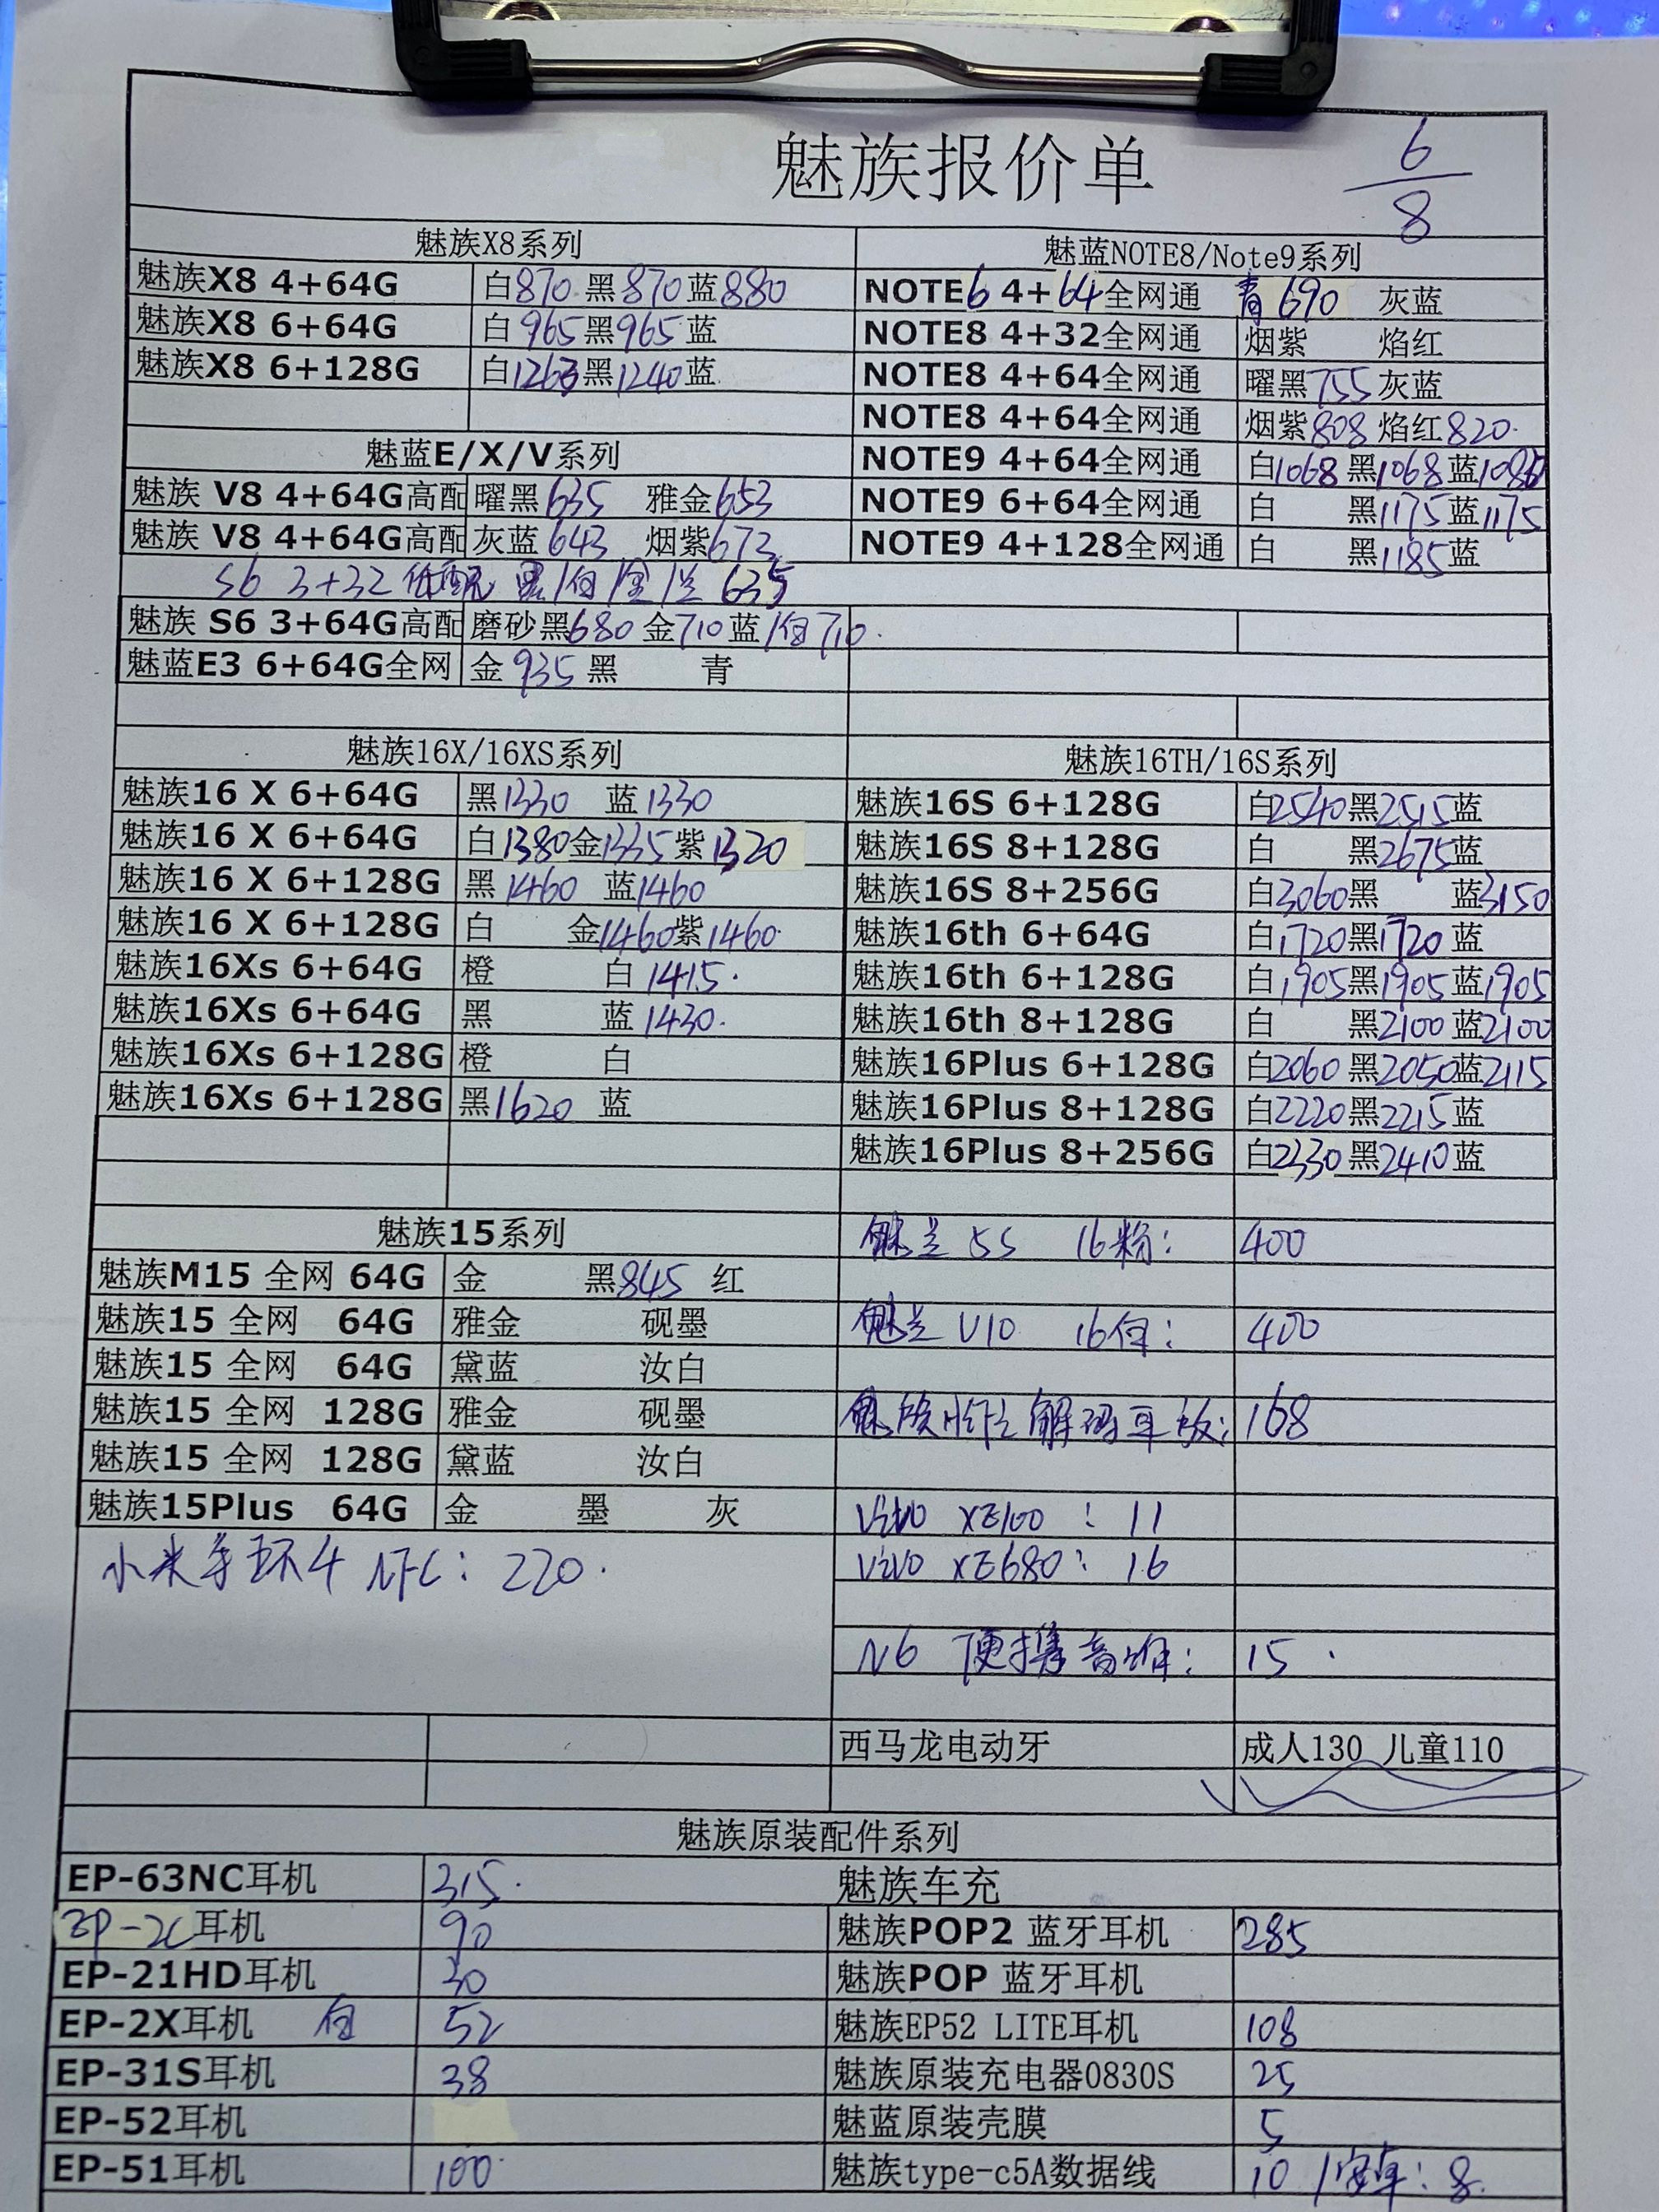 魅族报价单 6/8
魅族X8系列
魅族X8 4+64G 白870 黑870 蓝880
魅族X8 6+64G 白965 黑965 蓝
魅族X8 6+128G 白1263 黑1240 蓝
魅蓝E/X/V系列
魅族 V8 4+64G高配 曜黑635 雅金653
魅族 V8 4+64G高配 灰蓝643 烟紫673
S6 3+32 低配 黑/白/金/兰 635
魅族 S6 3+64G高配 磨砂黑680 金710 蓝/白710.
魅蓝E3 6+64G全网 金935 黑 青
魅蓝NOTE8/Note9系列
NOTE6 4+64全网通 青690 灰蓝
NOTE8 4+32全网通 烟紫 焰红
NOTE8 4+64全网通 曜黑755 灰蓝
NOTE8 4+64全网通 烟紫808 焰红820.
NOTE9 4+64全网通 白1068 黑1068 蓝
NOTE9 6+64全网通 白 黑1175 蓝1175
NOTE9 4+128全网通 白 黑1185 蓝
魅族16X/16XS系列
魅族16 X 6+64G 黑1330 蓝1330
魅族16 X 6+64G 白1380 金1335 紫1320
魅族16 X 6+128G 黑1460 蓝1460
魅族16 X 6+128G 白 金1460 紫1460.
魅族16Xs 6+64G 橙 白1415.
魅族16Xs 6+64G 黑 蓝1430.
魅族16Xs 6+128G 橙 白
魅族16Xs 6+128G 黑1620 蓝
魅族16TH/16S系列
魅族16S 6+128G 白2540 黑2515 蓝
魅族16S 8+128G 白 黑2675 蓝
魅族16S 8+256G 白3060 黑 蓝3150
魅族16th 6+64G 白1720 黑1720 蓝
魅族16th 6+128G 白1905 黑1905 蓝1905
魅族16th 8+128G 白 黑2100 蓝2100
魅族16Plus 6+128G 白2060 黑2050 蓝2115
魅族16Plus 8+128G 白2220 黑2215 蓝
魅族16Plus 8+256G 白2330 黑2410 蓝
魅族15系列
魅族M15 全网 64G 金 黑845 红
魅族15 全网 64G 雅金 砚墨
魅族15 全网 64G 黛蓝 汝白
魅族15 全网 128G 雅金 砚墨
魅族15 全网 128G 黛蓝 汝白
魅族15Plus 64G 金 墨 灰
小米手环4 NFC: 220.
魅兰 5S 16粉: 400
魅兰 U10 16白: 400
魅族 解码耳放: 168
vivo XE100 : 11
vivo XE680 : 16
N6 便携音响: 15.
西马龙电动牙 成人130 儿童110
魅族原装配件系列
EP-63NC耳机 315.
EP-2C耳机 90
EP-21HD耳机 30
EP-2X耳机 白 52
EP-31S耳机 38
EP-52耳机
EP-51耳机 100
魅族车充
魅族POP2 蓝牙耳机 285
魅族POP 蓝牙耳机
魅族EP52 LITE耳机 108
魅族原装充电器0830S 25
魅蓝原装壳膜 5
魅族type-c5A数据线 10 /安卓: 8.